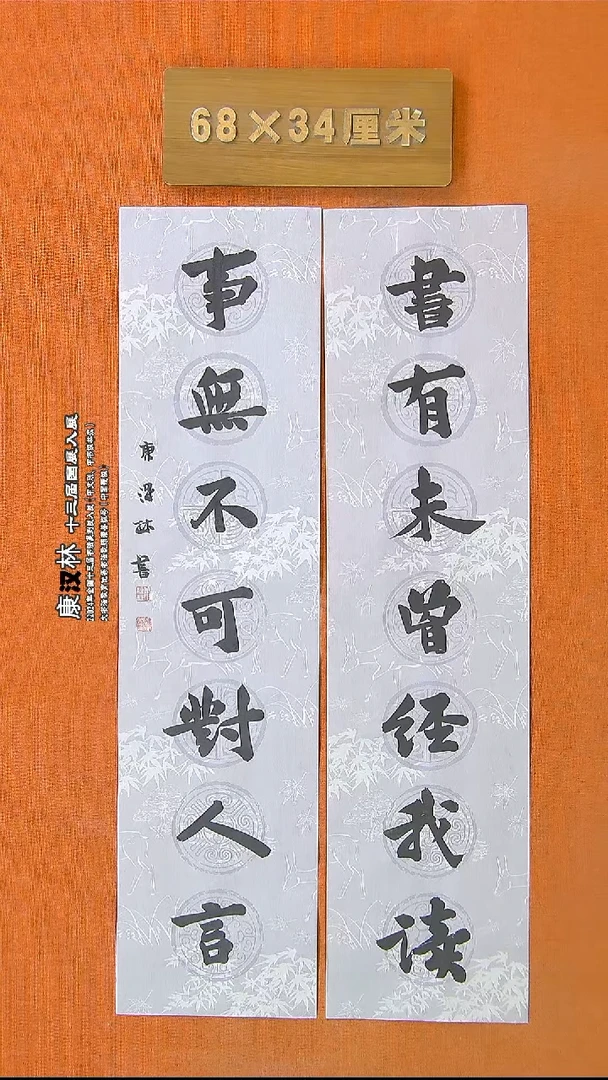 68×34厘米
書有未曾经我读
事無不可對人言
康汉林書
康汉林 十三届国展入展